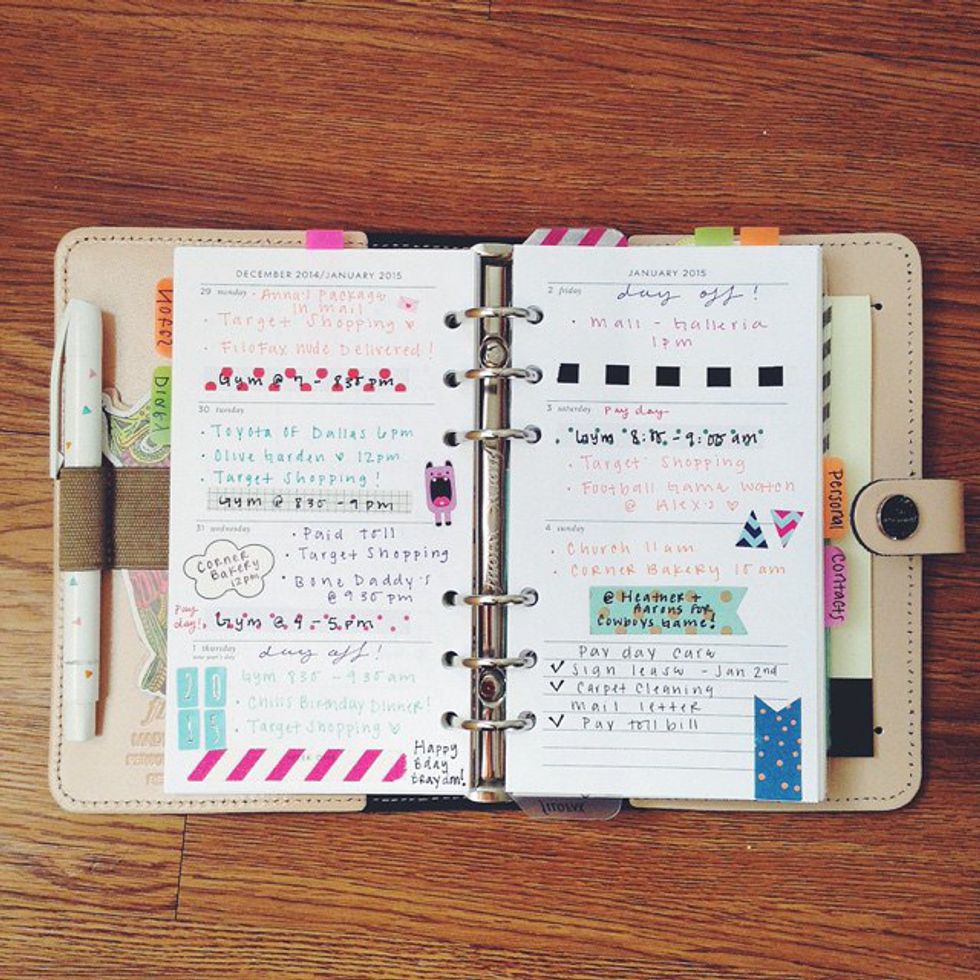 DECEMBER 2014/JANUARY 2015
29 monday
• Anna's Package
in mail
• Target Shopping ♡
• FiloFax nude Delivered!
Gym @ 7 - 830pm
30 tuesday
• Toyota of Dallas 6pm
• Olive Garden ♡ 12pm
• Target Shopping!
Gym @ 830 - 9pm
31 wednesday
• Paid toll
• Target Shopping
Corner
Bakery
12pm
• Bone Daddy's
@ 930pm
Pay
day!
Gym @ 4 - 5pm
1 thursday
new year's day
day off!
Gym 830 - 930am
• Chili's Birthday Dinner!
• Target Shopping ♡
20
15
Happy
Bday
Braydon!
JANUARY 2015
2 friday
day off!
• Mall - Galleria
1pm
3 saturday
Pay day
• Gym 8:00 - 9:00am
• Target Shopping
• Football Game Watch
@ Alex's ♡
4 sunday
• Church 11am
• Corner Bakery 10am
@ Heather +
Aarons for
Cowboys Game!
Pay day card
✓ Sign lease - Jan 2nd
✓ Carpet Cleaning
Mail letter
✓ Pay toll bill
Notes
Personal
Contacts